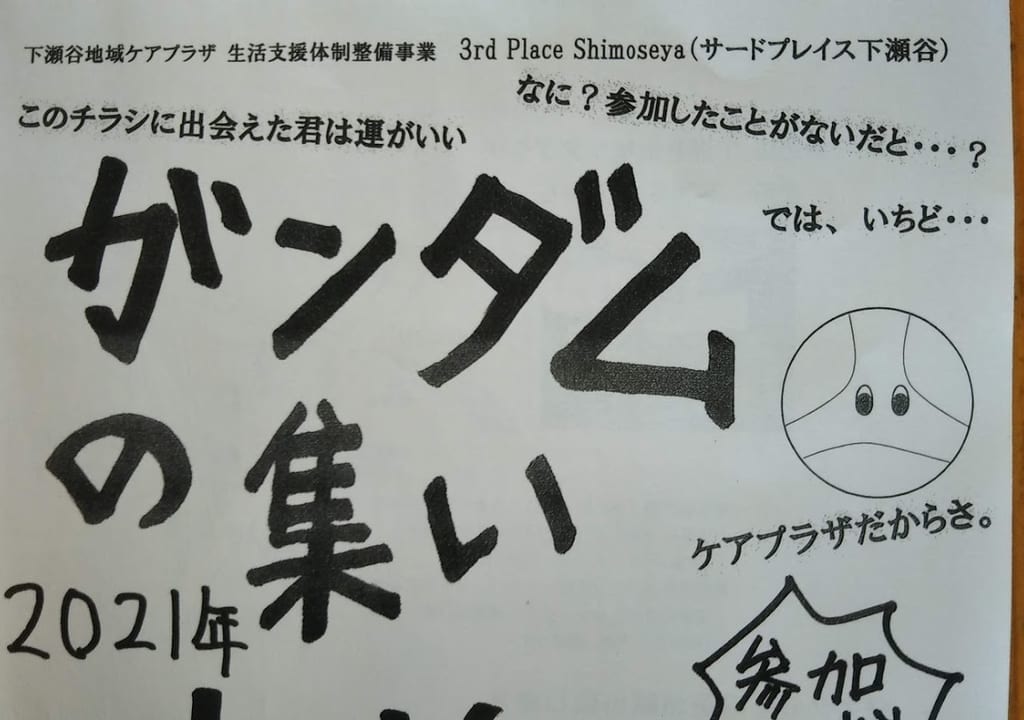 下瀬谷地域ケアプラザ 生活支援体制整備事業 3rd Place Shimoseya(サードプレイス下瀬谷)
このチラシに出会えた君は運がいい
なに?参加したことがないだと・・・?
では、いちど・・・
ガンダム
の集い
ケアプラザだからさ。
2021年
参加